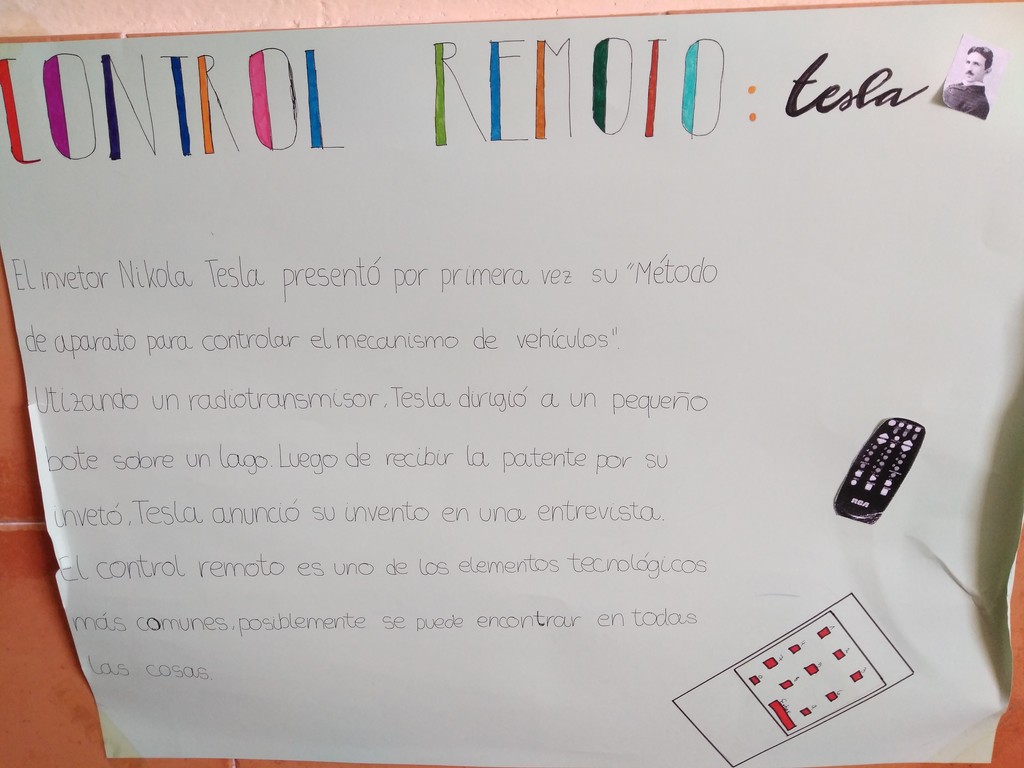 CONTROL REMOTO: tesla
El invetor Nikola Tesla presentó por primera vez su "Método
de aparato para controlar el mecanismo de vehículos".
Utizando un radiotransmisor, Tesla dirigió a un pequeño
bote sobre un lago. Luego de recibir la patente por su
invetó, Tesla anunció su invento en una entrevista.
El control remoto es uno de los elementos tecnológicos
más comunes, posiblemente se puede encontrar en todas
las cosas.
RCA